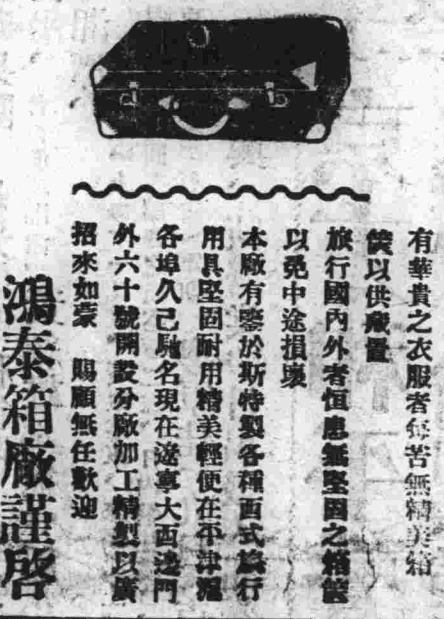 有華貴之衣服者每苦無精美箱
篋以供藏置
旅行國內外者恒患無堅固之箱篋
以免中途損壞
本廠有鑒於斯特製各種西式旅行
用具堅固耐用精美輕便在平津滬
各埠久已馳名現在遼寧大西邊門
外六十號開設分廠加工精製以廣
招來如蒙　賜顧無任歡迎
鴻泰箱廠謹啓